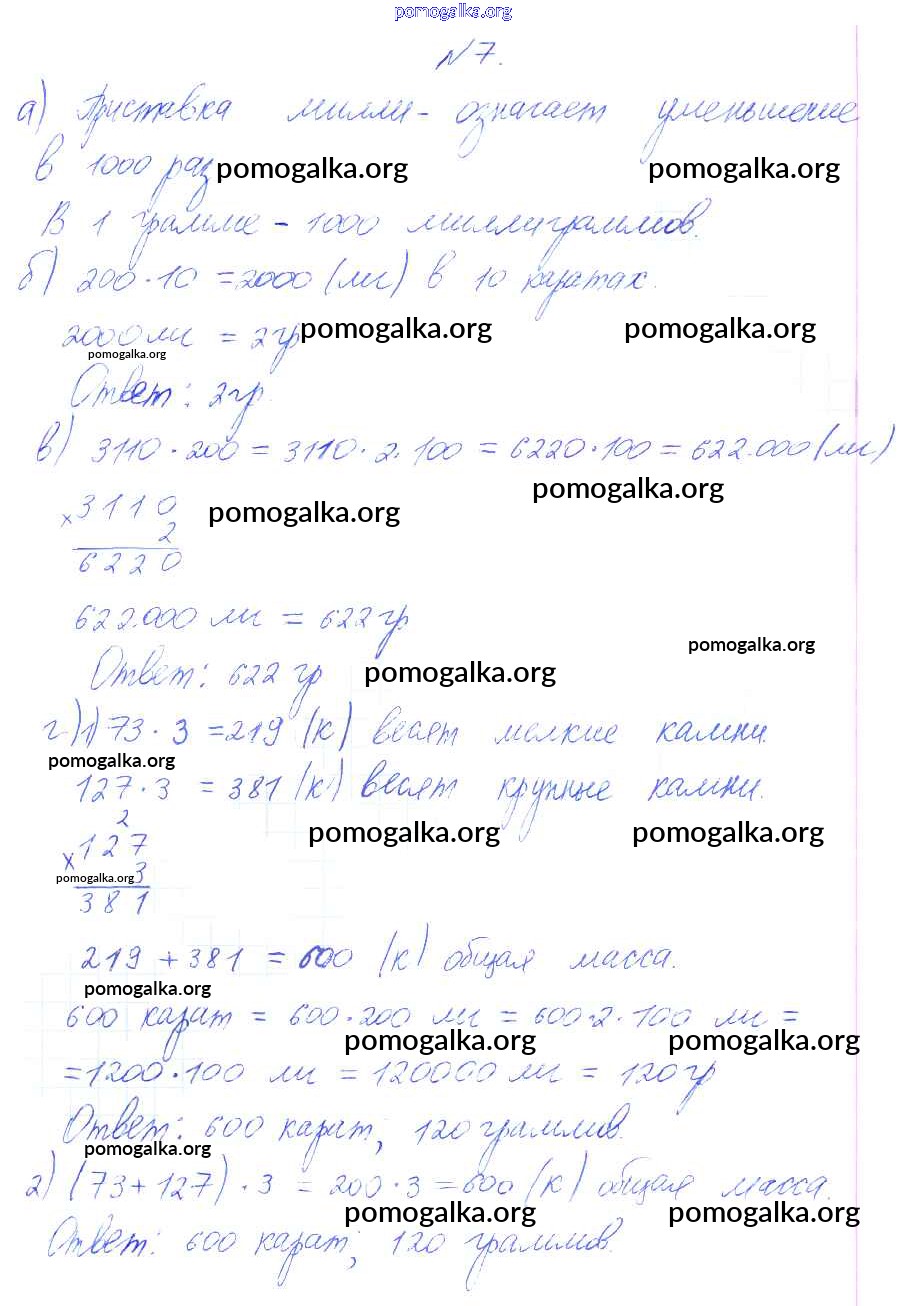 pomogalka.org
№7.
а) Приставка милли- означает уменьшение
в 1000 раз pomogalka.org pomogalka.org
В 1 грамме - 1000 миллиграммов.
б) 200·10 =2000 (мг) в 10 каратах.
2000 мг = 2 гр pomogalka.org pomogalka.org
pomogalka.org
Ответ: 2 гр.
в) 3110·200 = 3110·2·100 = 6220·100 = 622.000 (мг)
pomogalka.org
× 3110 pomogalka.org
2
6220
622.000 мг = 622 гр
pomogalka.org
Ответ: 622 гр pomogalka.org
г) 1) 73·3 =219 (к) весят мелкие камни.
pomogalka.org
127·3 = 381 (к) весят крупные камни.
2
pomogalka.org pomogalka.org
× 127
pomogalka.org 3
381
219 + 381 = 600 (к) общая масса.
pomogalka.org
600 карат = 600·200 мг = 600·2·100 мг =
pomogalka.org pomogalka.org
=1200·100 мг = 120000 мг = 120 гр
Ответ: 600 карат; 120 граммов.
pomogalka.org
2) (73+127)·3 = 200·3 =600 (к) общая масса.
pomogalka.org pomogalka.org
Ответ: 600 карат; 120 граммов.